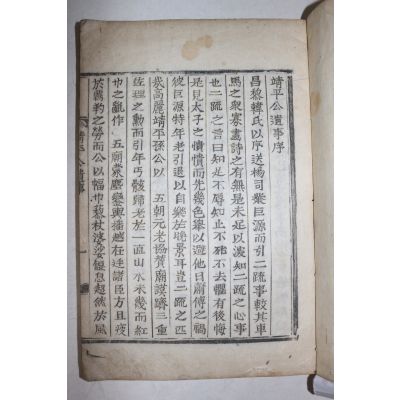 靖平公遺事序
昌黎韓氏以序送楊司業巨源而引二疏事較其車
馬之衆寡畵詩之有無是未足以深知二疏之心事
也二疏之言曰知足不辱知止不殆不去懼有後悔
是見太子之憒憒而先幾色擧以避他日蕭傅之禍
彼巨源特年老引退以自樂於晚景耳豈二疏之匹
哉高麗靖平孫公以 五朝元老協贊廟謨躋三重
佐理之勲而引年丐骸歸老於一直山水未幾而紅
巾之亂作 五廟蒙塵鑾輿播越在廷諸臣方且疲
於羈靮之勞而公以幅巾藜杖婆娑偃息超然於風